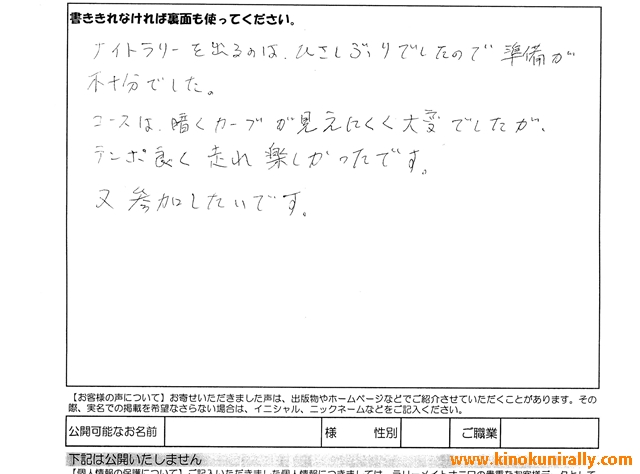 書ききれなければ裏面も使ってください。
ナイトラリーを出るのは、ひさしぶりでしたので準備が
不十分でした。
コースは、暗くカーブが見えにくく大変でしたが、
テンポ良く走れ楽しかったです。
又参加したいです。
【お客様の声について】お寄せいただきました声は、出版物やホームページなどでご紹介させていただくことがあります。その
際、実名での掲載を希望なさらない場合は、イニシャル、ニックネームなどをご記入ください。
公開可能なお名前 様 性別 ご職業
下記は公開いたしません
www.kinokunirally.com